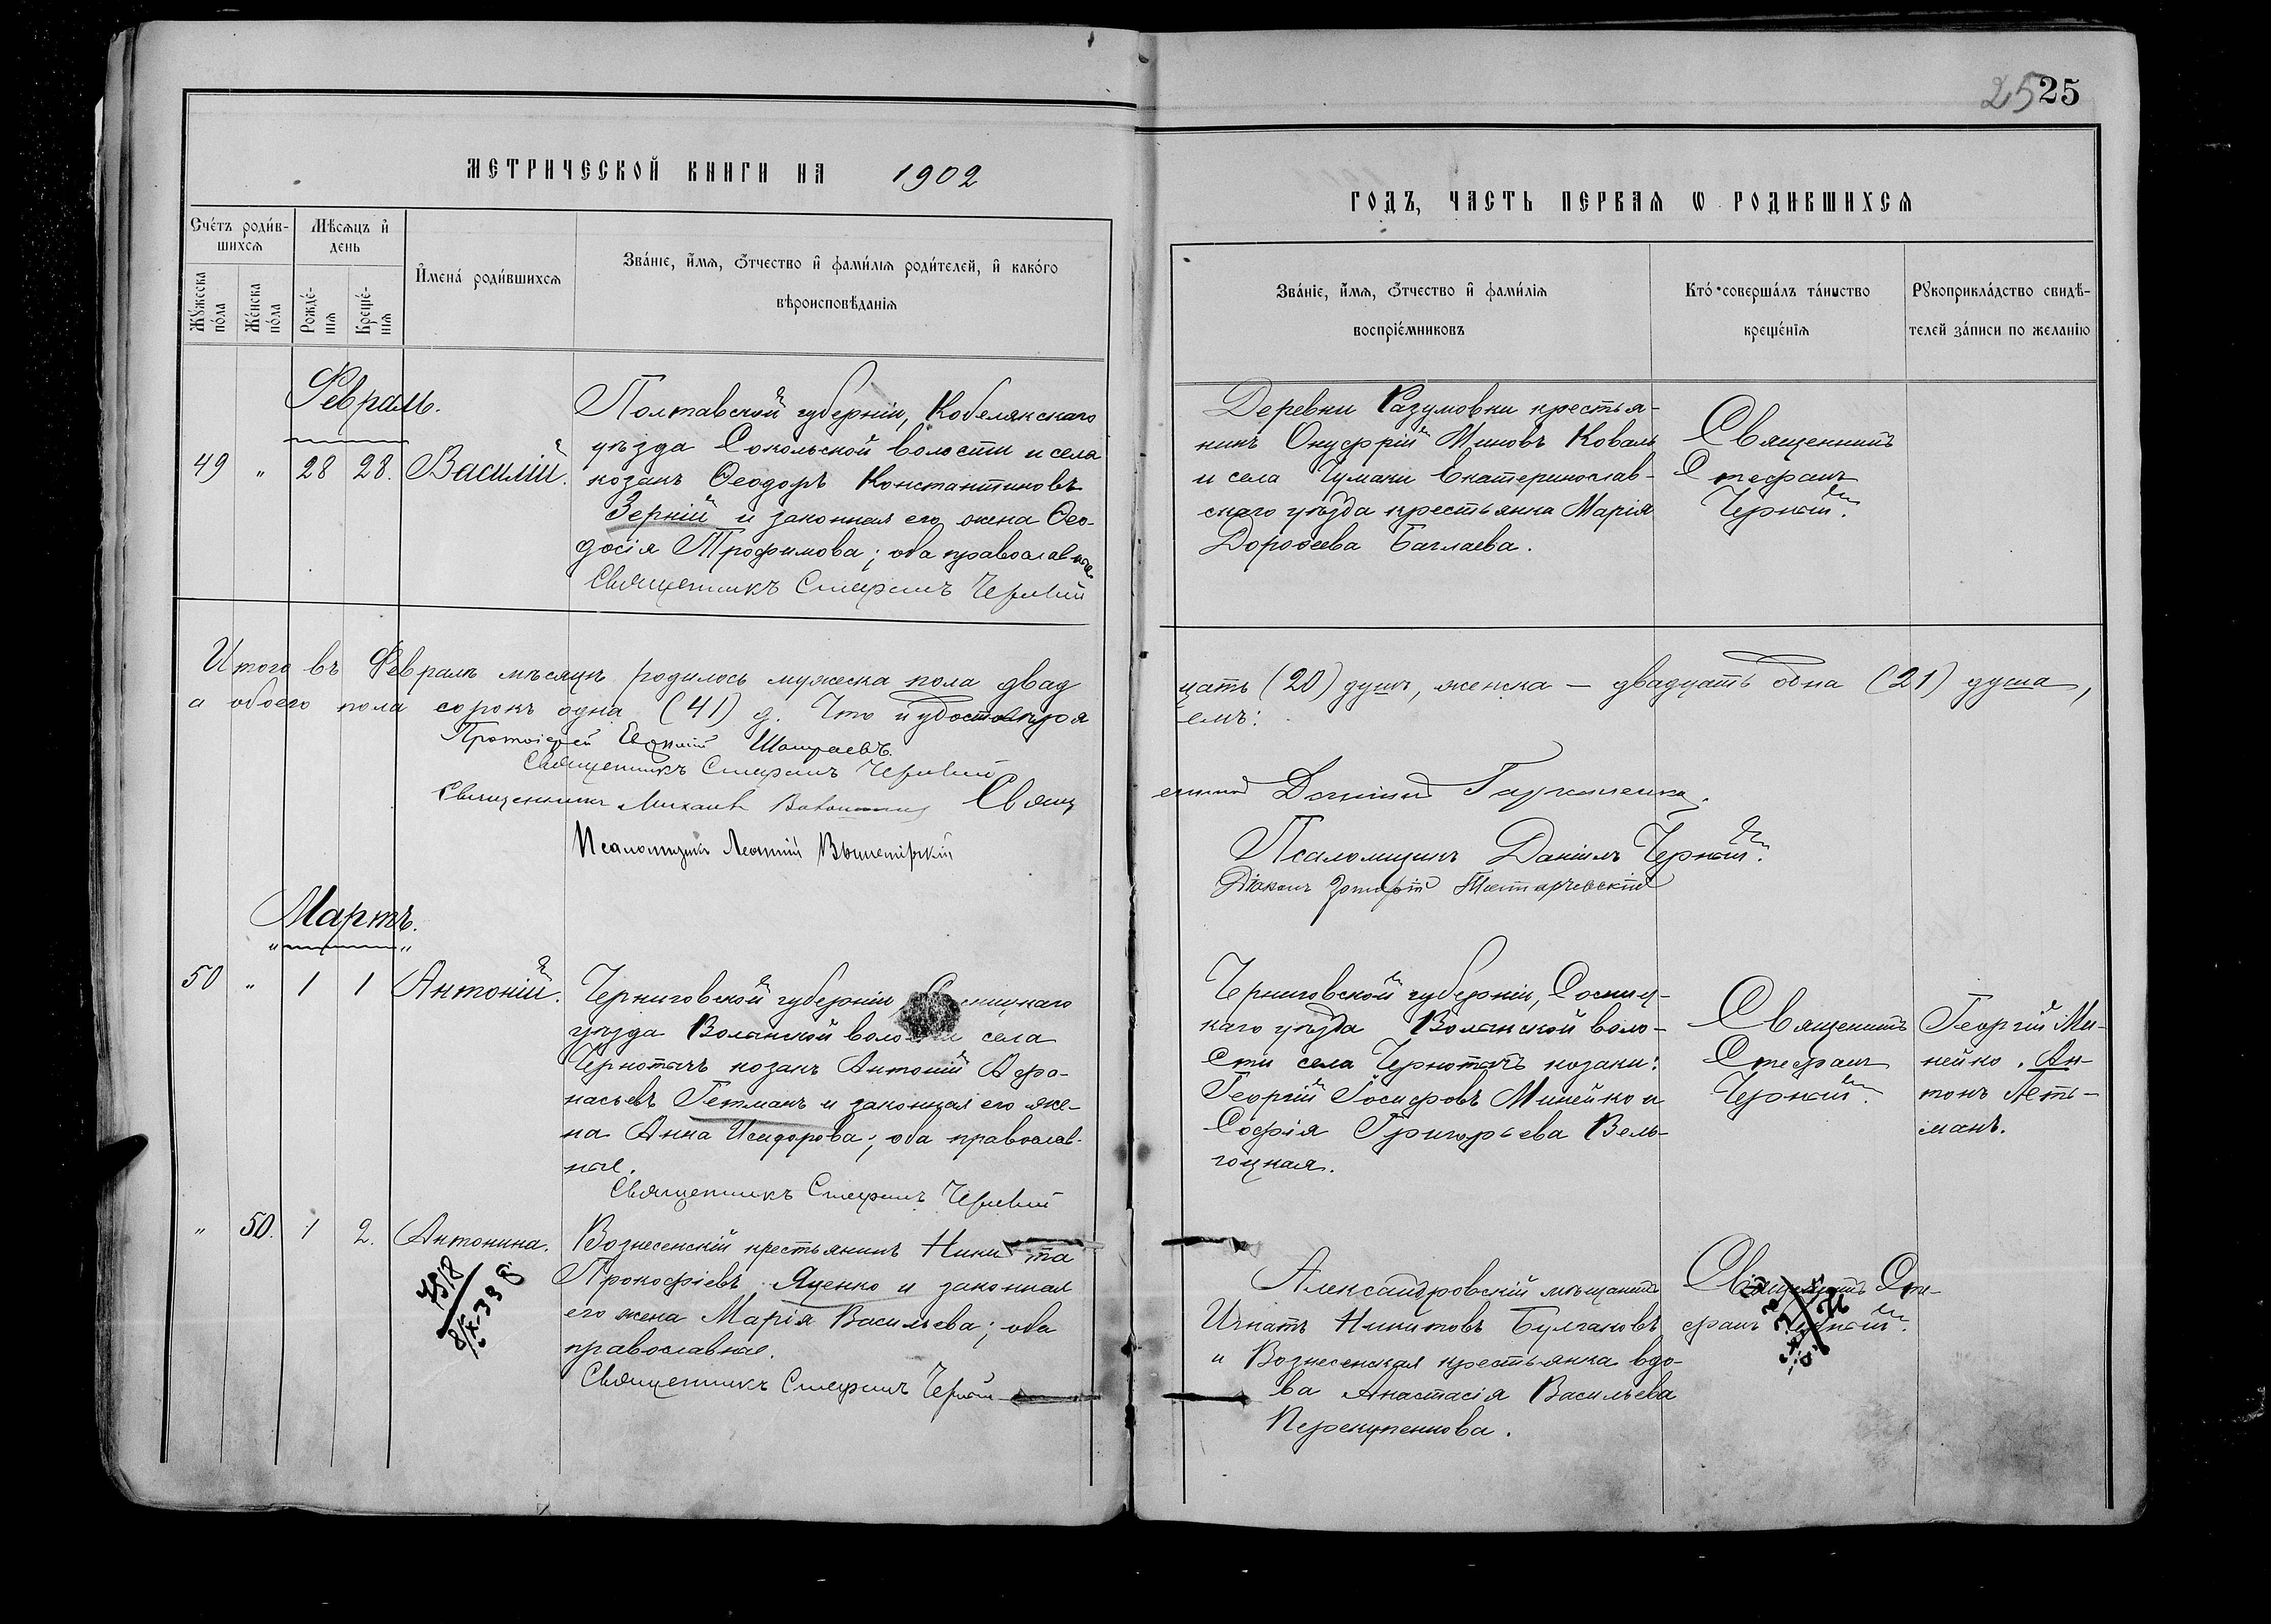 25 25
МЕТРИЧЕСКОЙ КНИГИ НА 1902
ГОДЪ, ЧАСТЬ ПЕРВАЯ Ѡ РОДИВШИХСЯ
Счётъ родив-
шихся
Мужеска
пола
Женска
пола
Мѣсяцъ и
день
Рожде-
нія
Креще-
нія
Имена родившихся
Званіе, имя, отчество и фамилія родителей, и какого
вѣроисповѣданія
Званіе, имя, отчество и фамилія
воспріемниковъ
Кто совершалъ таинство
крещенія
Рукоприкладство свидѣ-
телей записи по желанію
Февраль.
49 " 28 28. Василій.
Полтавской губерніи, Кобелякскаго
уѣзда Сокольской волости и села
козакъ Ѳеодоръ Константиновъ
Зерній и законная его жена Ѳео-
досія Трофимова; оба православные
Священникъ Стефанъ Черный
Деревни Разумовки крестья-
нинъ Онуфрій Миновъ Коваль
и села Чумаки Екатеринослав-
скаго уѣзда крестьянка Марія
Дороѳеева Баглаева.
Священникъ
Стефанъ
Черный.
Итого въ Февралѣ мѣсяцѣ родилось мужеска пола двад
цать (20) душъ, женска — двадцать одна (21) душа,
а обоего пола сорокъ одна (41) д. Что и удостовѣря
емъ:
Протоіерей
Священникъ Стефанъ Черный
Священникъ Михаилъ Свящ
енникъ
Псаломщикъ Леонтій
Псаломщикъ Даніилъ Черный.
Діаконъ
Мартъ.
50 " 1 1 Антоній.
Черниговской губерніи
уѣзда Волынской волости села
Чернотичъ козакъ Антоній Афа-
насьевъ Гетманъ и законная его же-
на Анна Исидорова; оба православ-
ные.
Священникъ Стефанъ Черный
Черниговской губерніи, Сосниц-
каго уѣзда Волынской воло-
сти села Чернотичъ козаки:
Георгій Іосифовъ Минейко и
Софія Григорьева Вель-
гоцкая.
Священникъ
Стефанъ
Черный.
Георгій Ми-
нейко. Ан-
тонъ Геть-
манъ.
" 50. 1 2. Антонина.
Вознесенскій крестьянинъ Никита
Прокофіевъ Яценко и законная
его жена Марія Васильева; оба
православные.
Священникъ Стефанъ Черный
Александровскій мѣщанинъ
Игнатъ Никитовъ Булгаковъ
и Вознесенская крестьянка вдо-
ва Анастасія Васильева
Перекупенкова.
Священникъ Сте-
фанъ Черный.